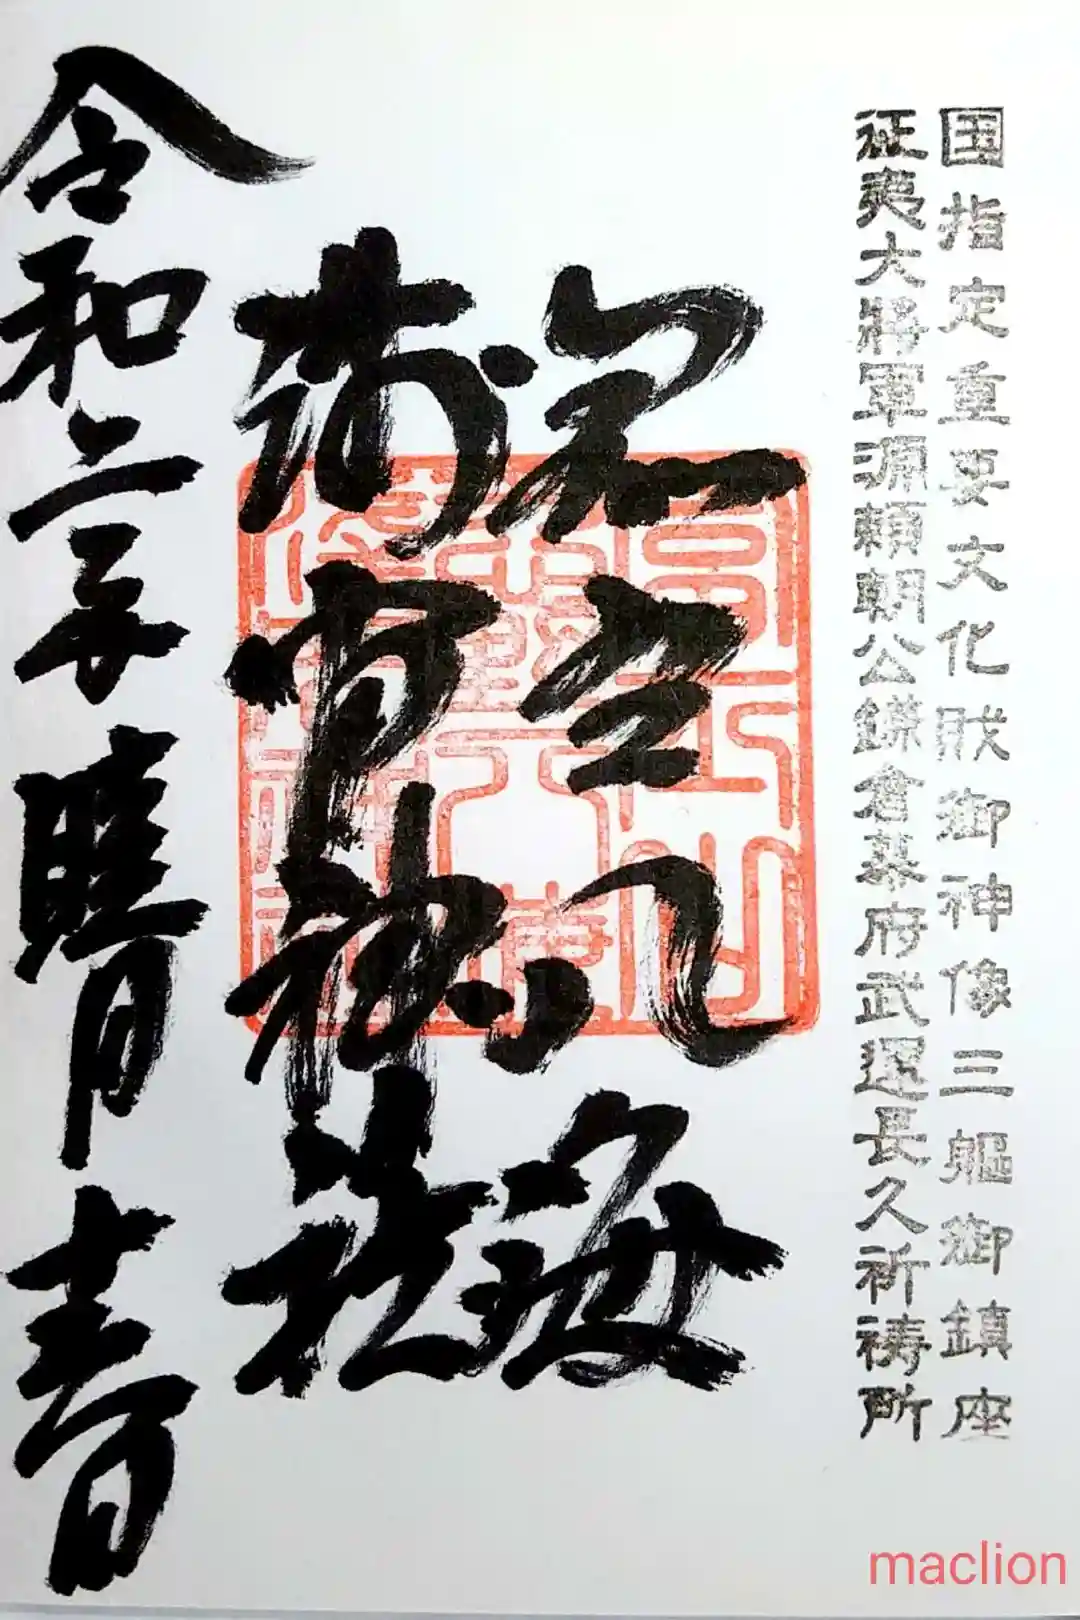 国指定重要文化財御神像三軀御鎮座
征夷大將軍源頼朝公鎌倉幕府武運長久祈祷所
八海
浅間神社
令和二年睦月吉日
maclion